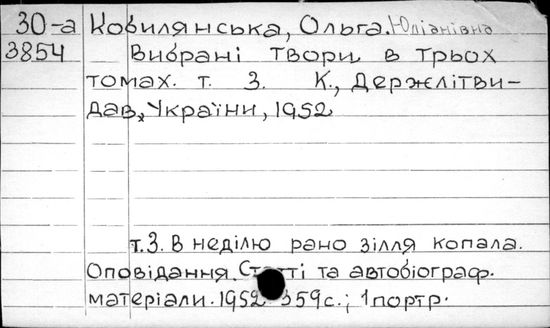 30-а Кобилянська, Ольга. Юліанівна
3854 Вибрані твори в трьох
томах. т. 3. К., Держлітви-
дав, України, 1952
т.3. В неділю рано зілля копала.
Оповідання. Статті та автобіограф.
матеріали. 1952. 359с.; 1портр.